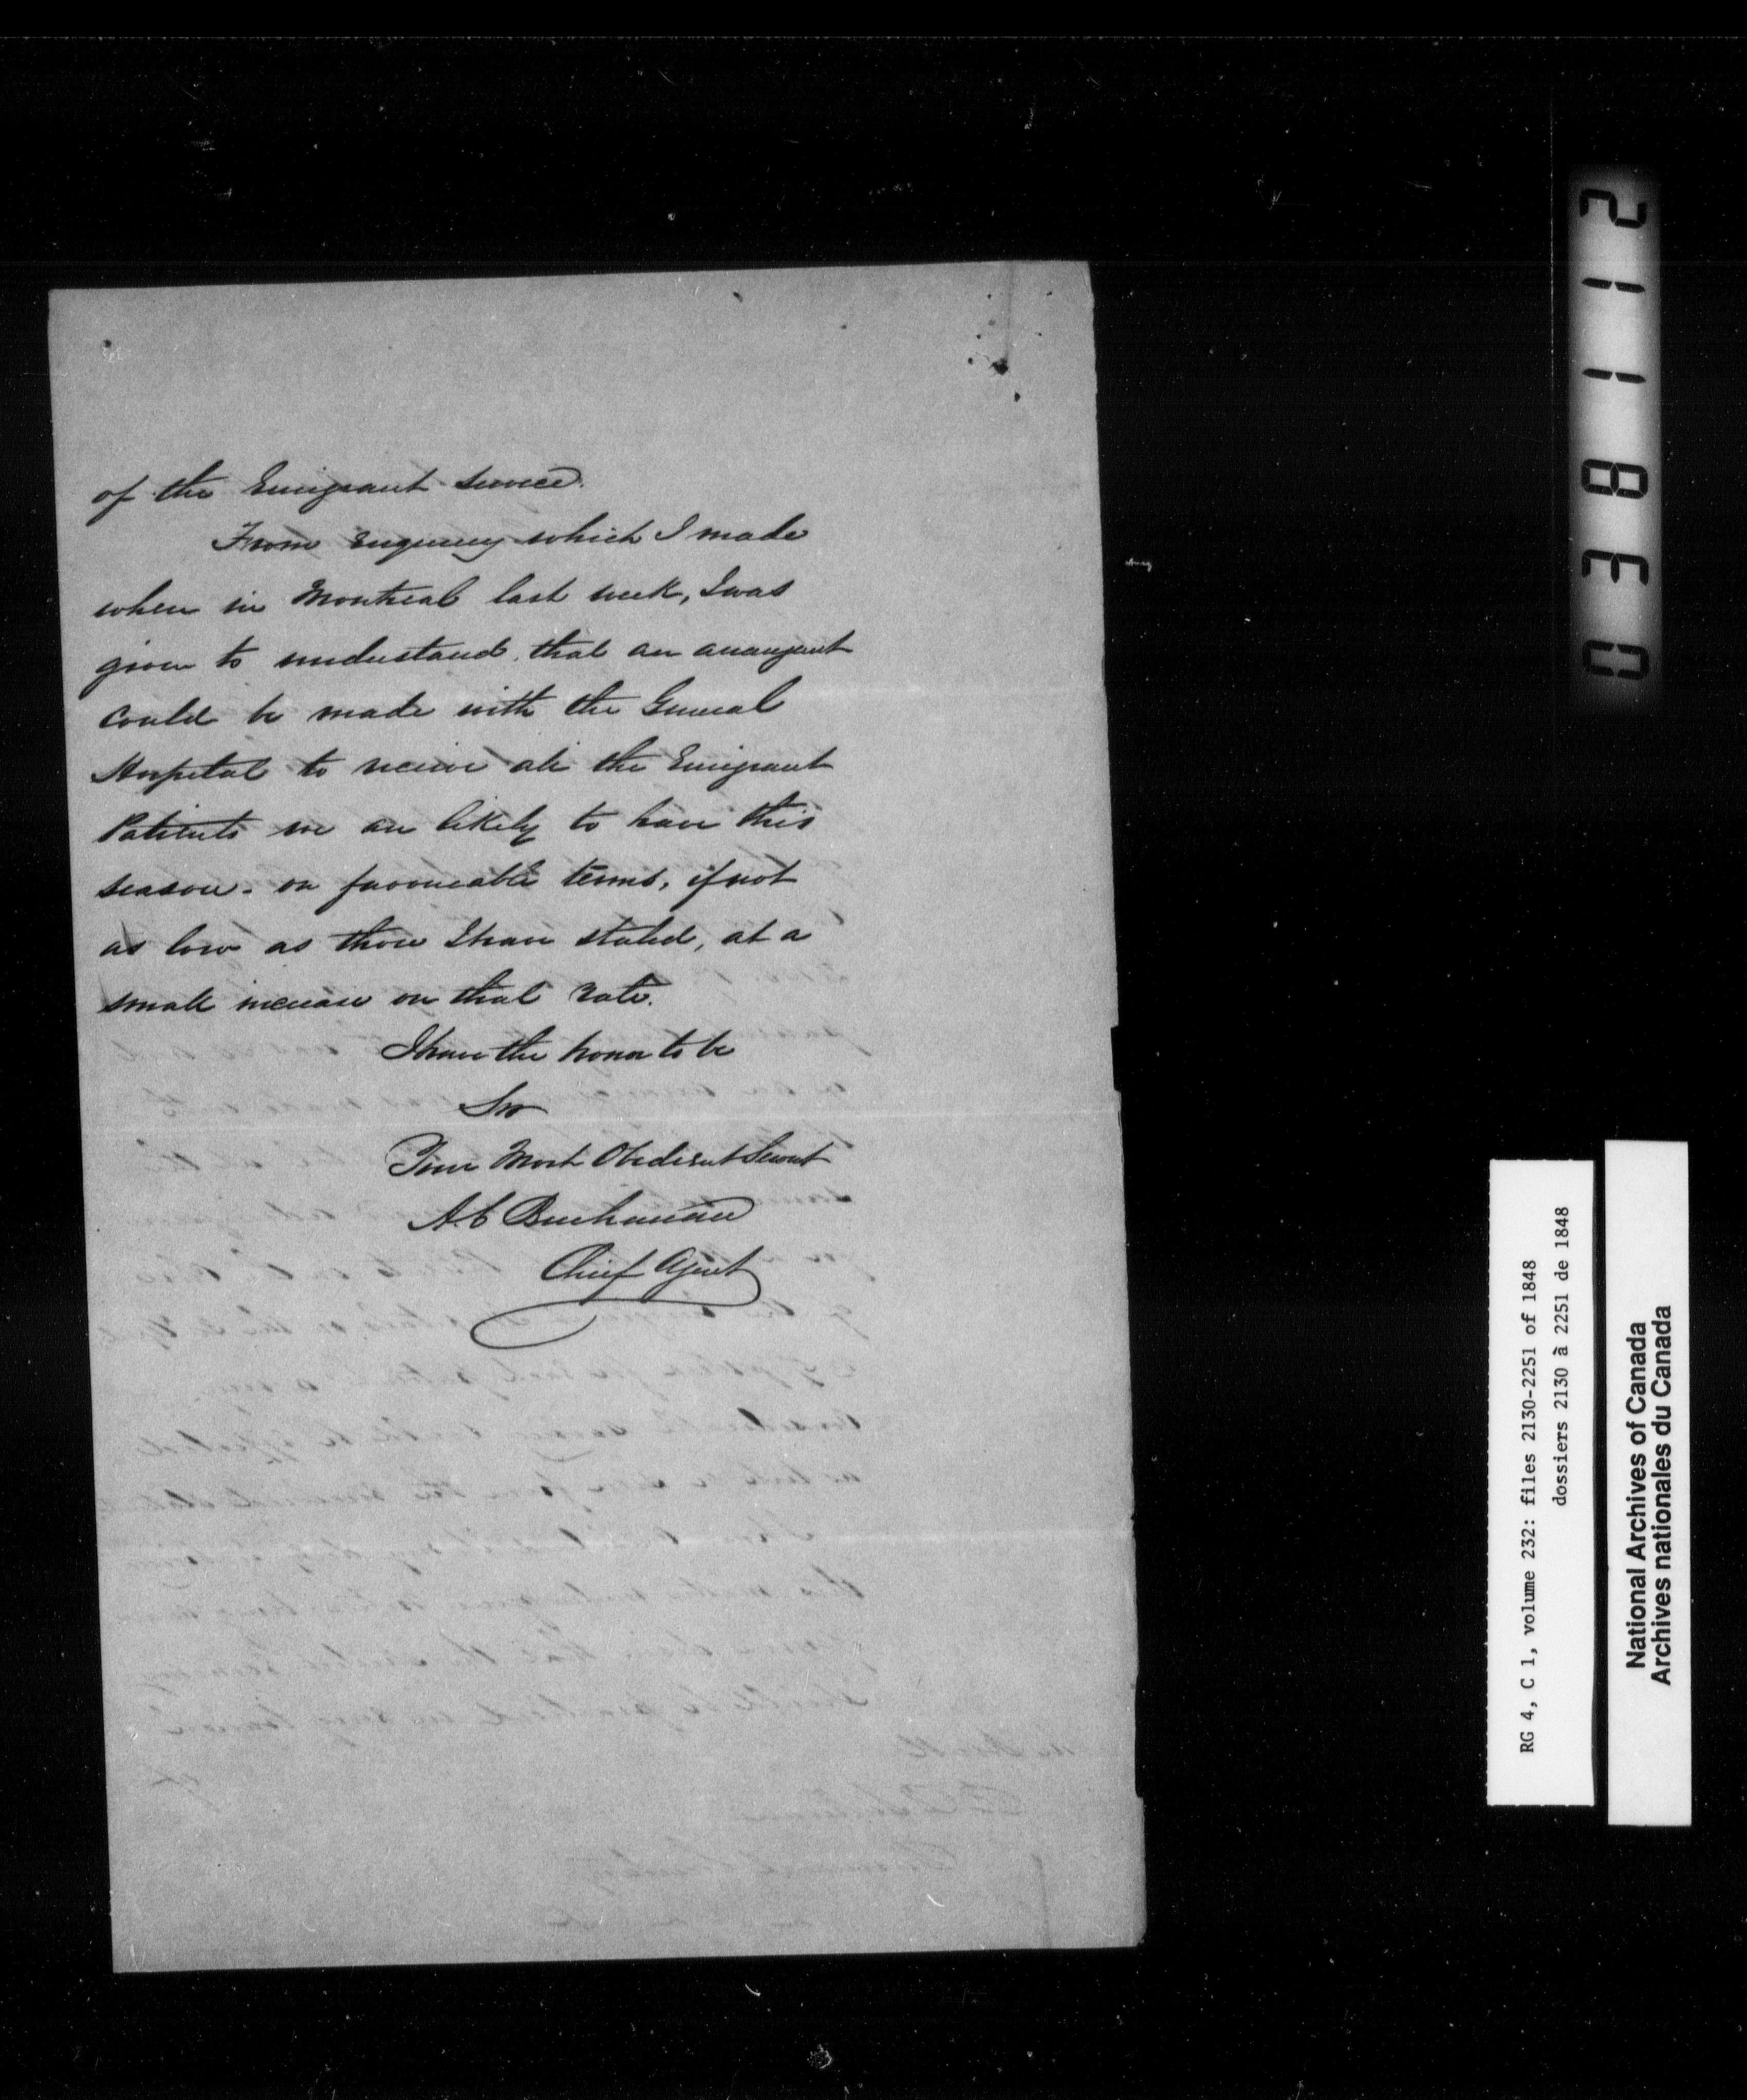 of the Emigrant Service.
From enquiry which I made
when in Montreal last week, I was
given to understand, that an arrangent
could be made with the General
Hospital to receive all the Emigrant
Patients we are likely to have this
season. on favourable terms, if not
as low as those I have stated, at a
small increase on that rate.
I have the honor to be
Sir
Your Most Obedient Servt
A.C Buchanan
Chief Agent
038112
RG 4, C 1, volume 232: files 2130-2251 of 1848
dossiers 2130 à 2251 de 1848
National Archives of Canada
Archives nationales du Canada